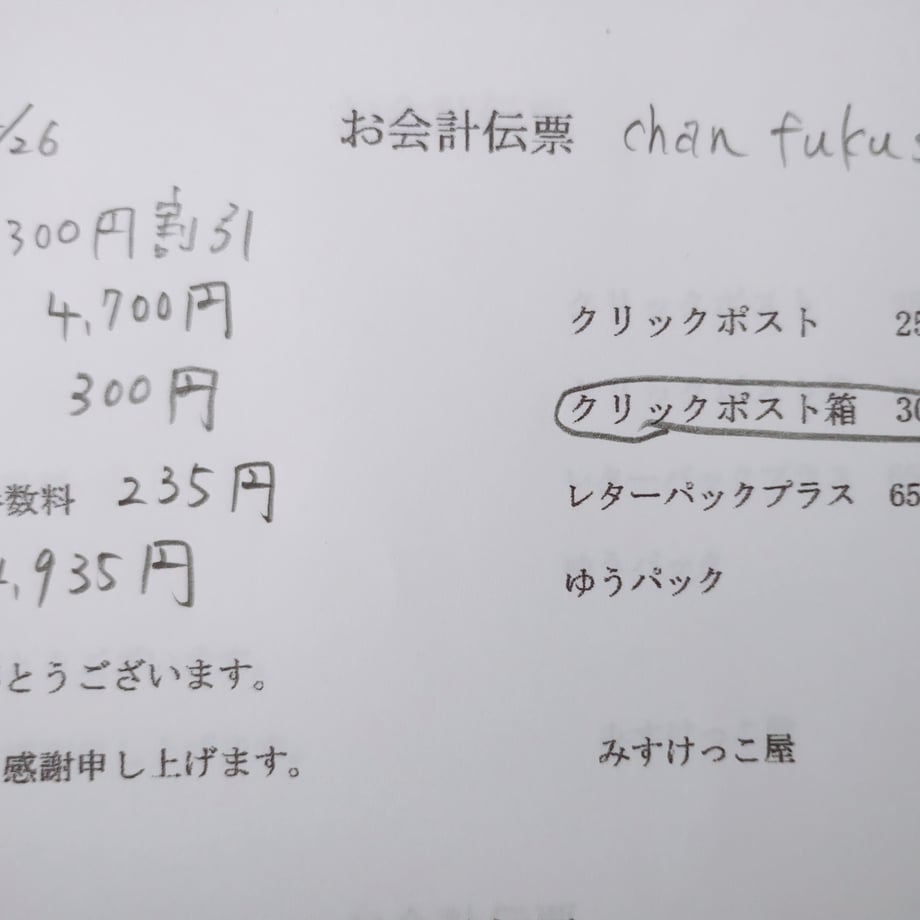 /26 お会計伝票 chan fukus
300円割引
4,700円 クリックポスト 25
300円 クリックポスト箱 30
数料 235円 レターパックプラス 65
,935円 ゆうパック
とうございます。
感謝申し上げます。 みすけっこ屋